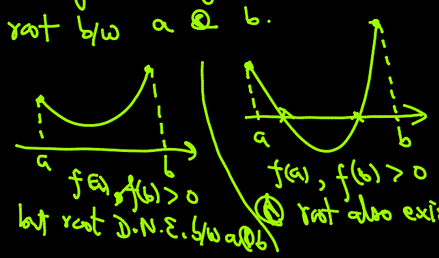 root b/w a & b.
a b
a b
f(a), f(b) > 0
but root D.N.E. b/w a & b
f(a), f(b) > 0
& root also exi